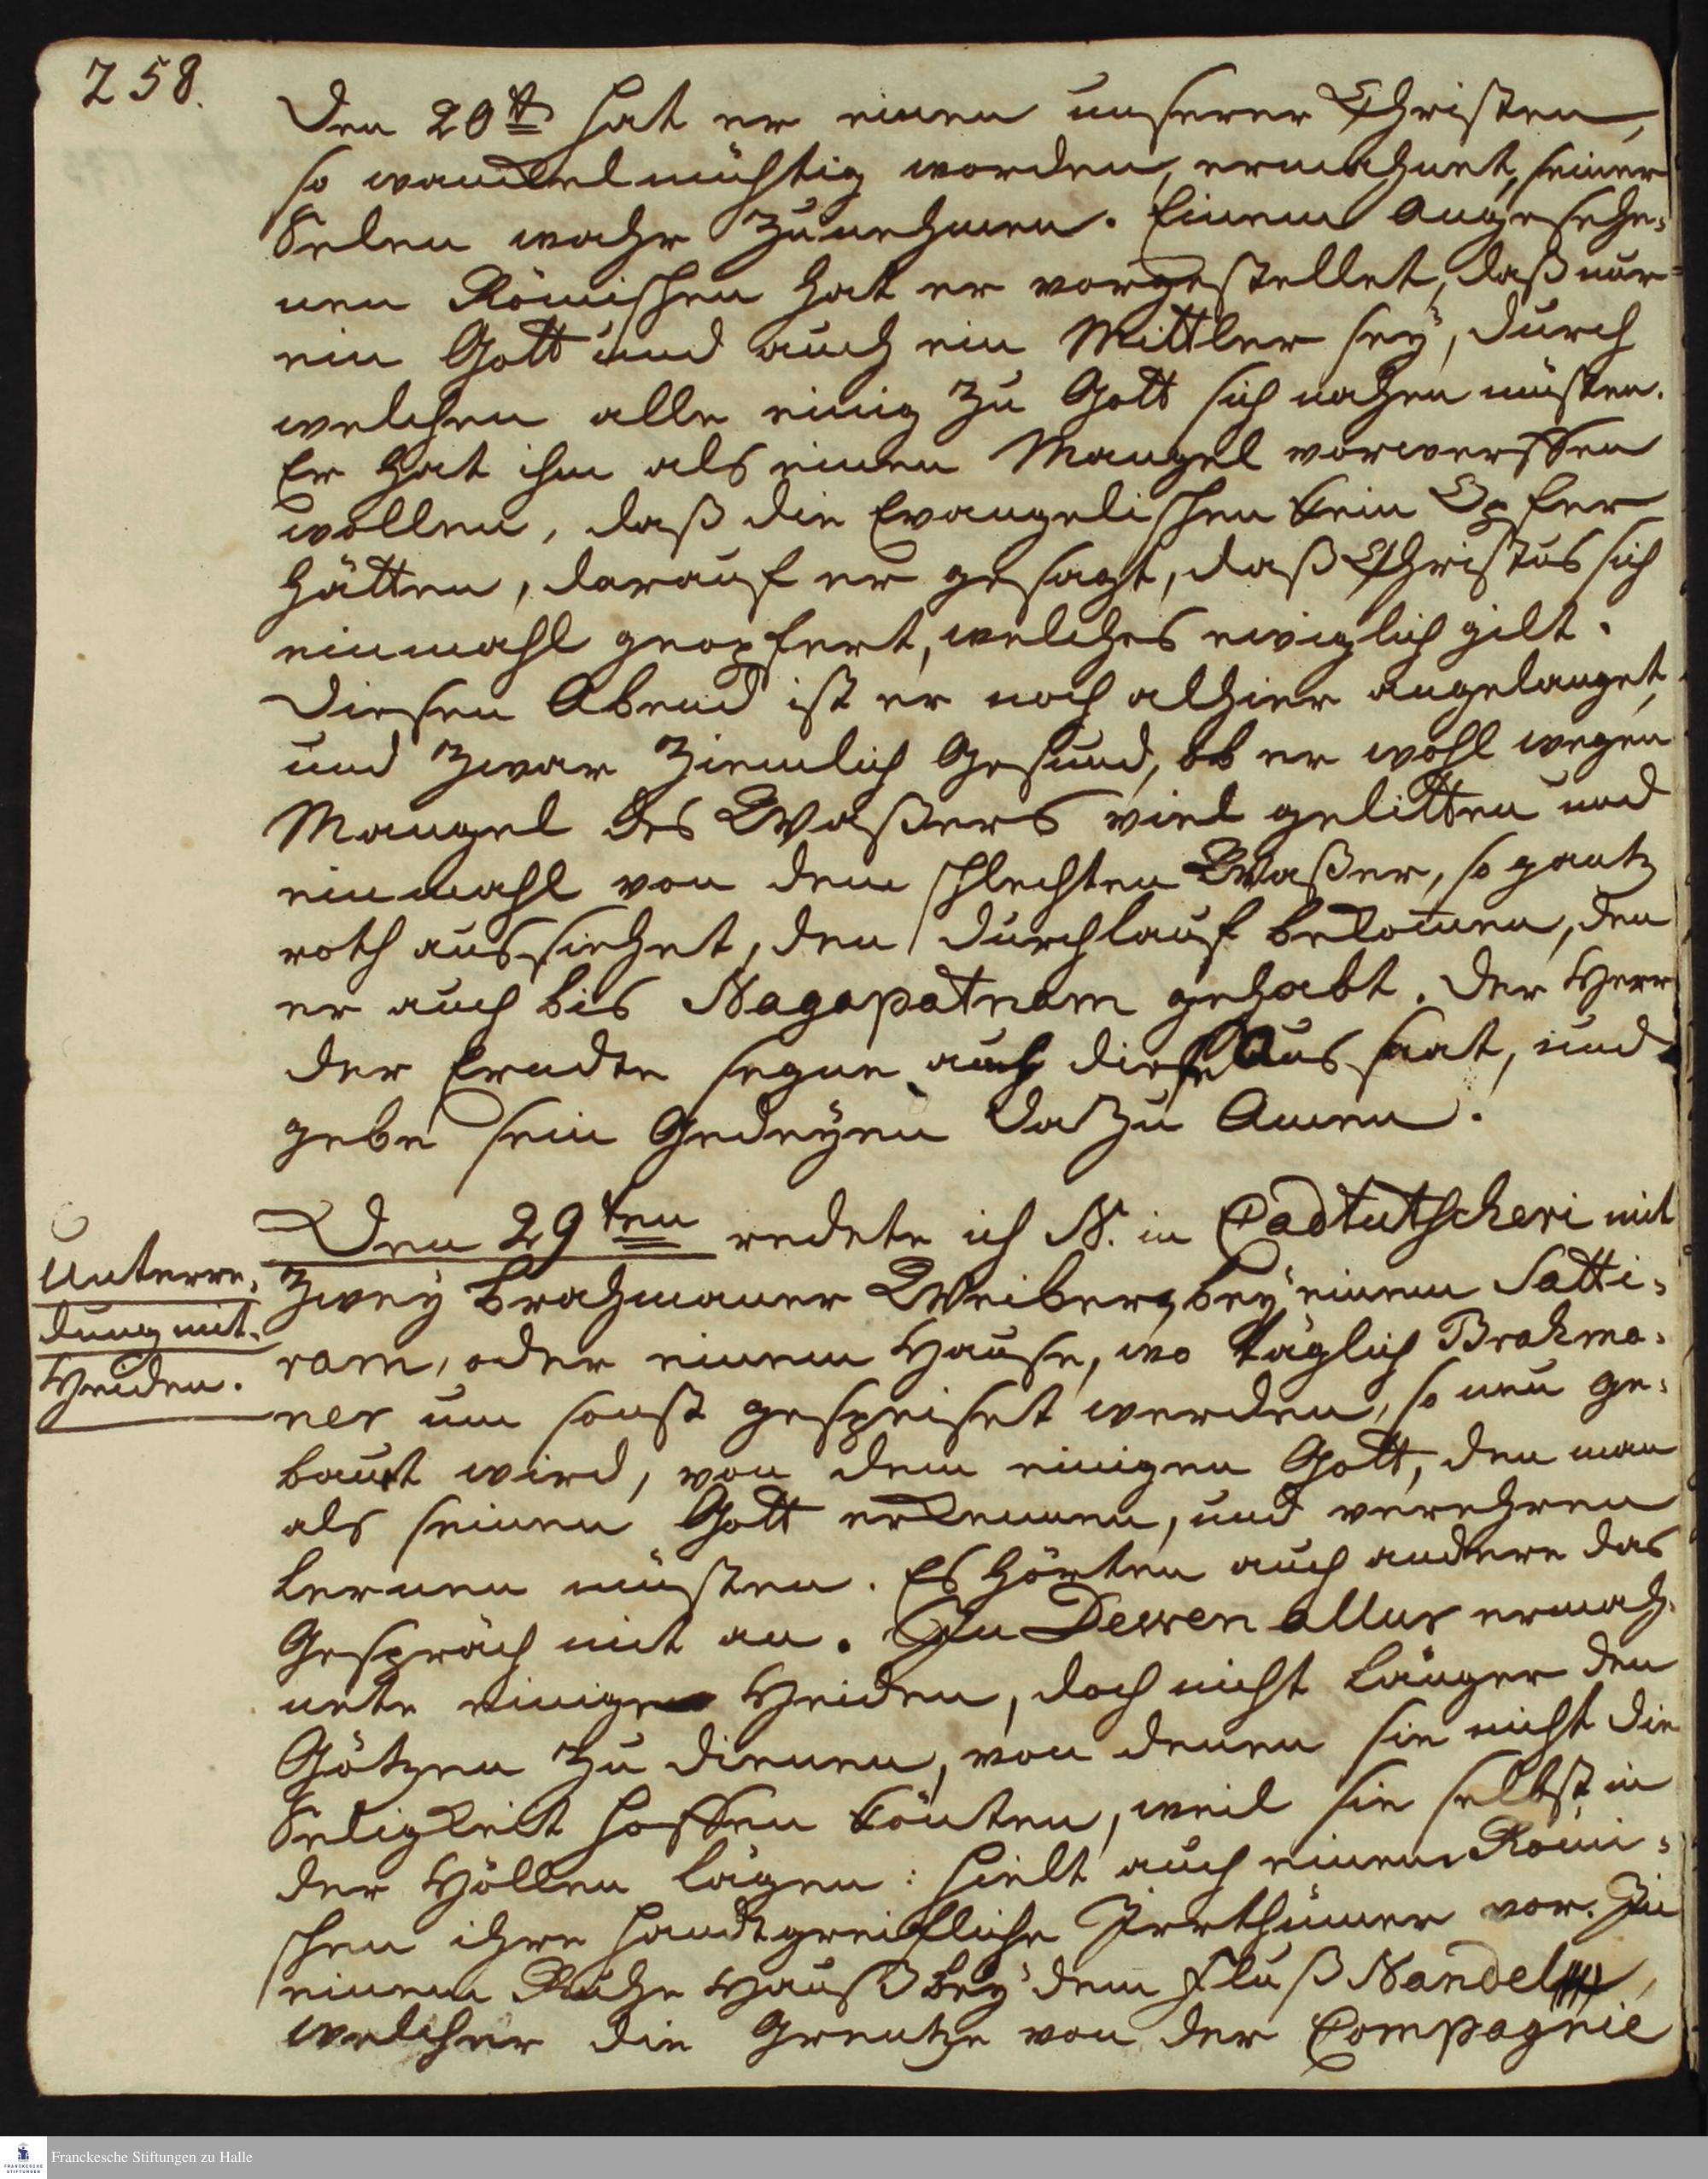 258.
Den 20t hat er einen unserer Christen,
so wanckelmüthig worden, ermahnet, seiner
Selen wahr zunehmen. Einem angesehe-
nen Römischen hat er vorgestellet, daß nur
ein Gott und auch ein Mittler sey, durch
welchen alle einig zu Gott sich nahen müsten.
Er hat ihm als einen Mangel vorwerffen
wollen, daß die Evangelischen kein Opfer
hätten, darauf er gesagt, daß Christus sich
einmahl geopfert, welches ewiglich gilt.
Diesen Abend ist er noch alhier angelanget,
und zwar ziemlich Gesund, ob er wohl wegen
Mangel des Waßers viel gelitten und
einmahl von dem schlechten Waßer, so gantz
roth aussiehet, den Durchlauf bekom̄en, den
er auch bis Nagapatnam gehabt. Der Herr
der Erndte segne auch diese Aussaat, und
gebe sein Gedeyen dazu Amen.
Den 29ten redete ich N. in Cadtutscheri mit
zwey Brahmaner Weibern, bey einem Satti-
ram, oder einem Hause, wo täglich Brahma-
ner um sonst gespeiset werden, so neu ge-
baut wird, von dem einigen Gott, den man
als seinen Gott erkennen, und verehren
lernen müsten. Es hörten auch andere das
Gespräch mit an. In Dewen allur ermah-
nete einige Heiden, doch nicht länger den
Götzen zu dienen, von denen sie nicht die
Seligkeit hoffen könten, weil sie selbst in
der Höllen lägen: hielt auch einem Römi-
schen ihre handtgreifliche Irrthümer vor. In
einem Ruhe Hauß bey dem Fluß Nandel,
welcher die Grentze von der Compagnie
Unterre-
dung mit
Heiden.
Franckesche Stiftungen zu Halle